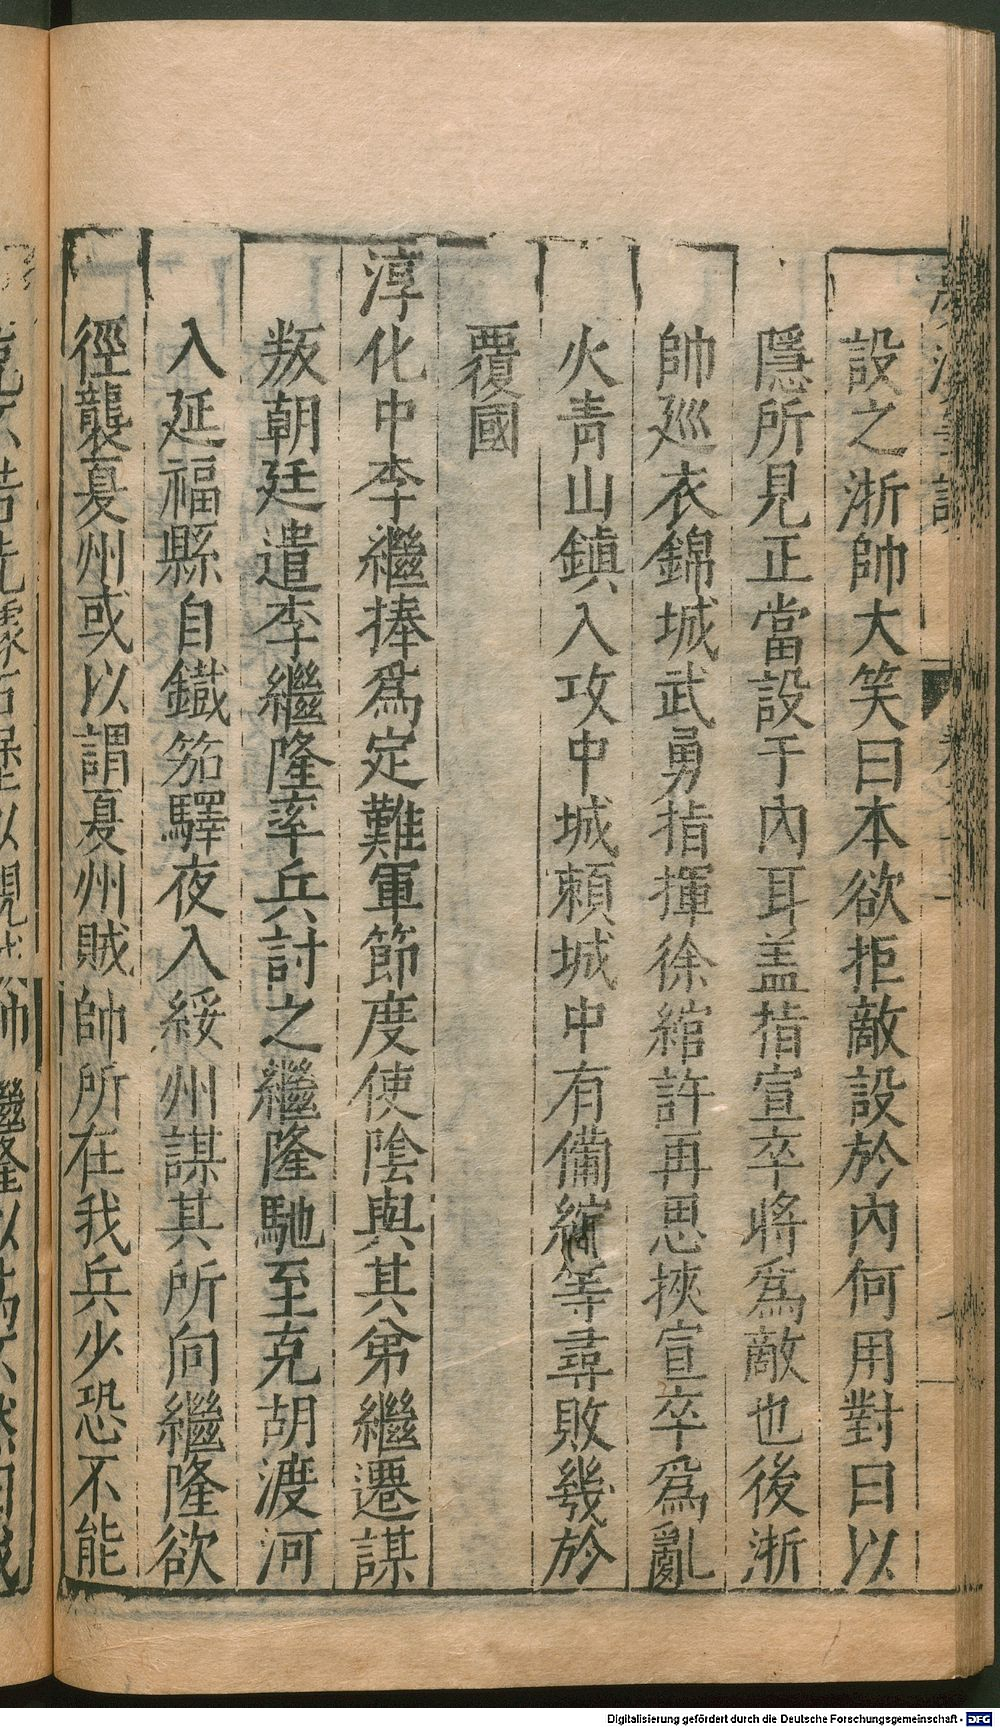 設之浙帥大笑曰本欲拒敵設於內何用對曰以
隱所見正當設于內耳盖指宣卒將爲敵也後浙
帥廵衣錦城武勇指揮徐綰許再思挾宣卒爲亂
火青山鎮入攻中城頼城中有備綰等尋敗幾於
覆國
淳化中李繼捧爲定難軍節度使陰與其弟繼遷謀
叛朝廷遣李繼隆率兵討之繼隆馳至克胡渡河
入延福縣自鐵笳驛夜入綏州謀其所向繼隆欲
徑襲夏州或以謂夏州賊帥所在我兵少恐不能
Digitalisierung gefördert durch die Deutsche Forschungsgemeinschaft - DFG